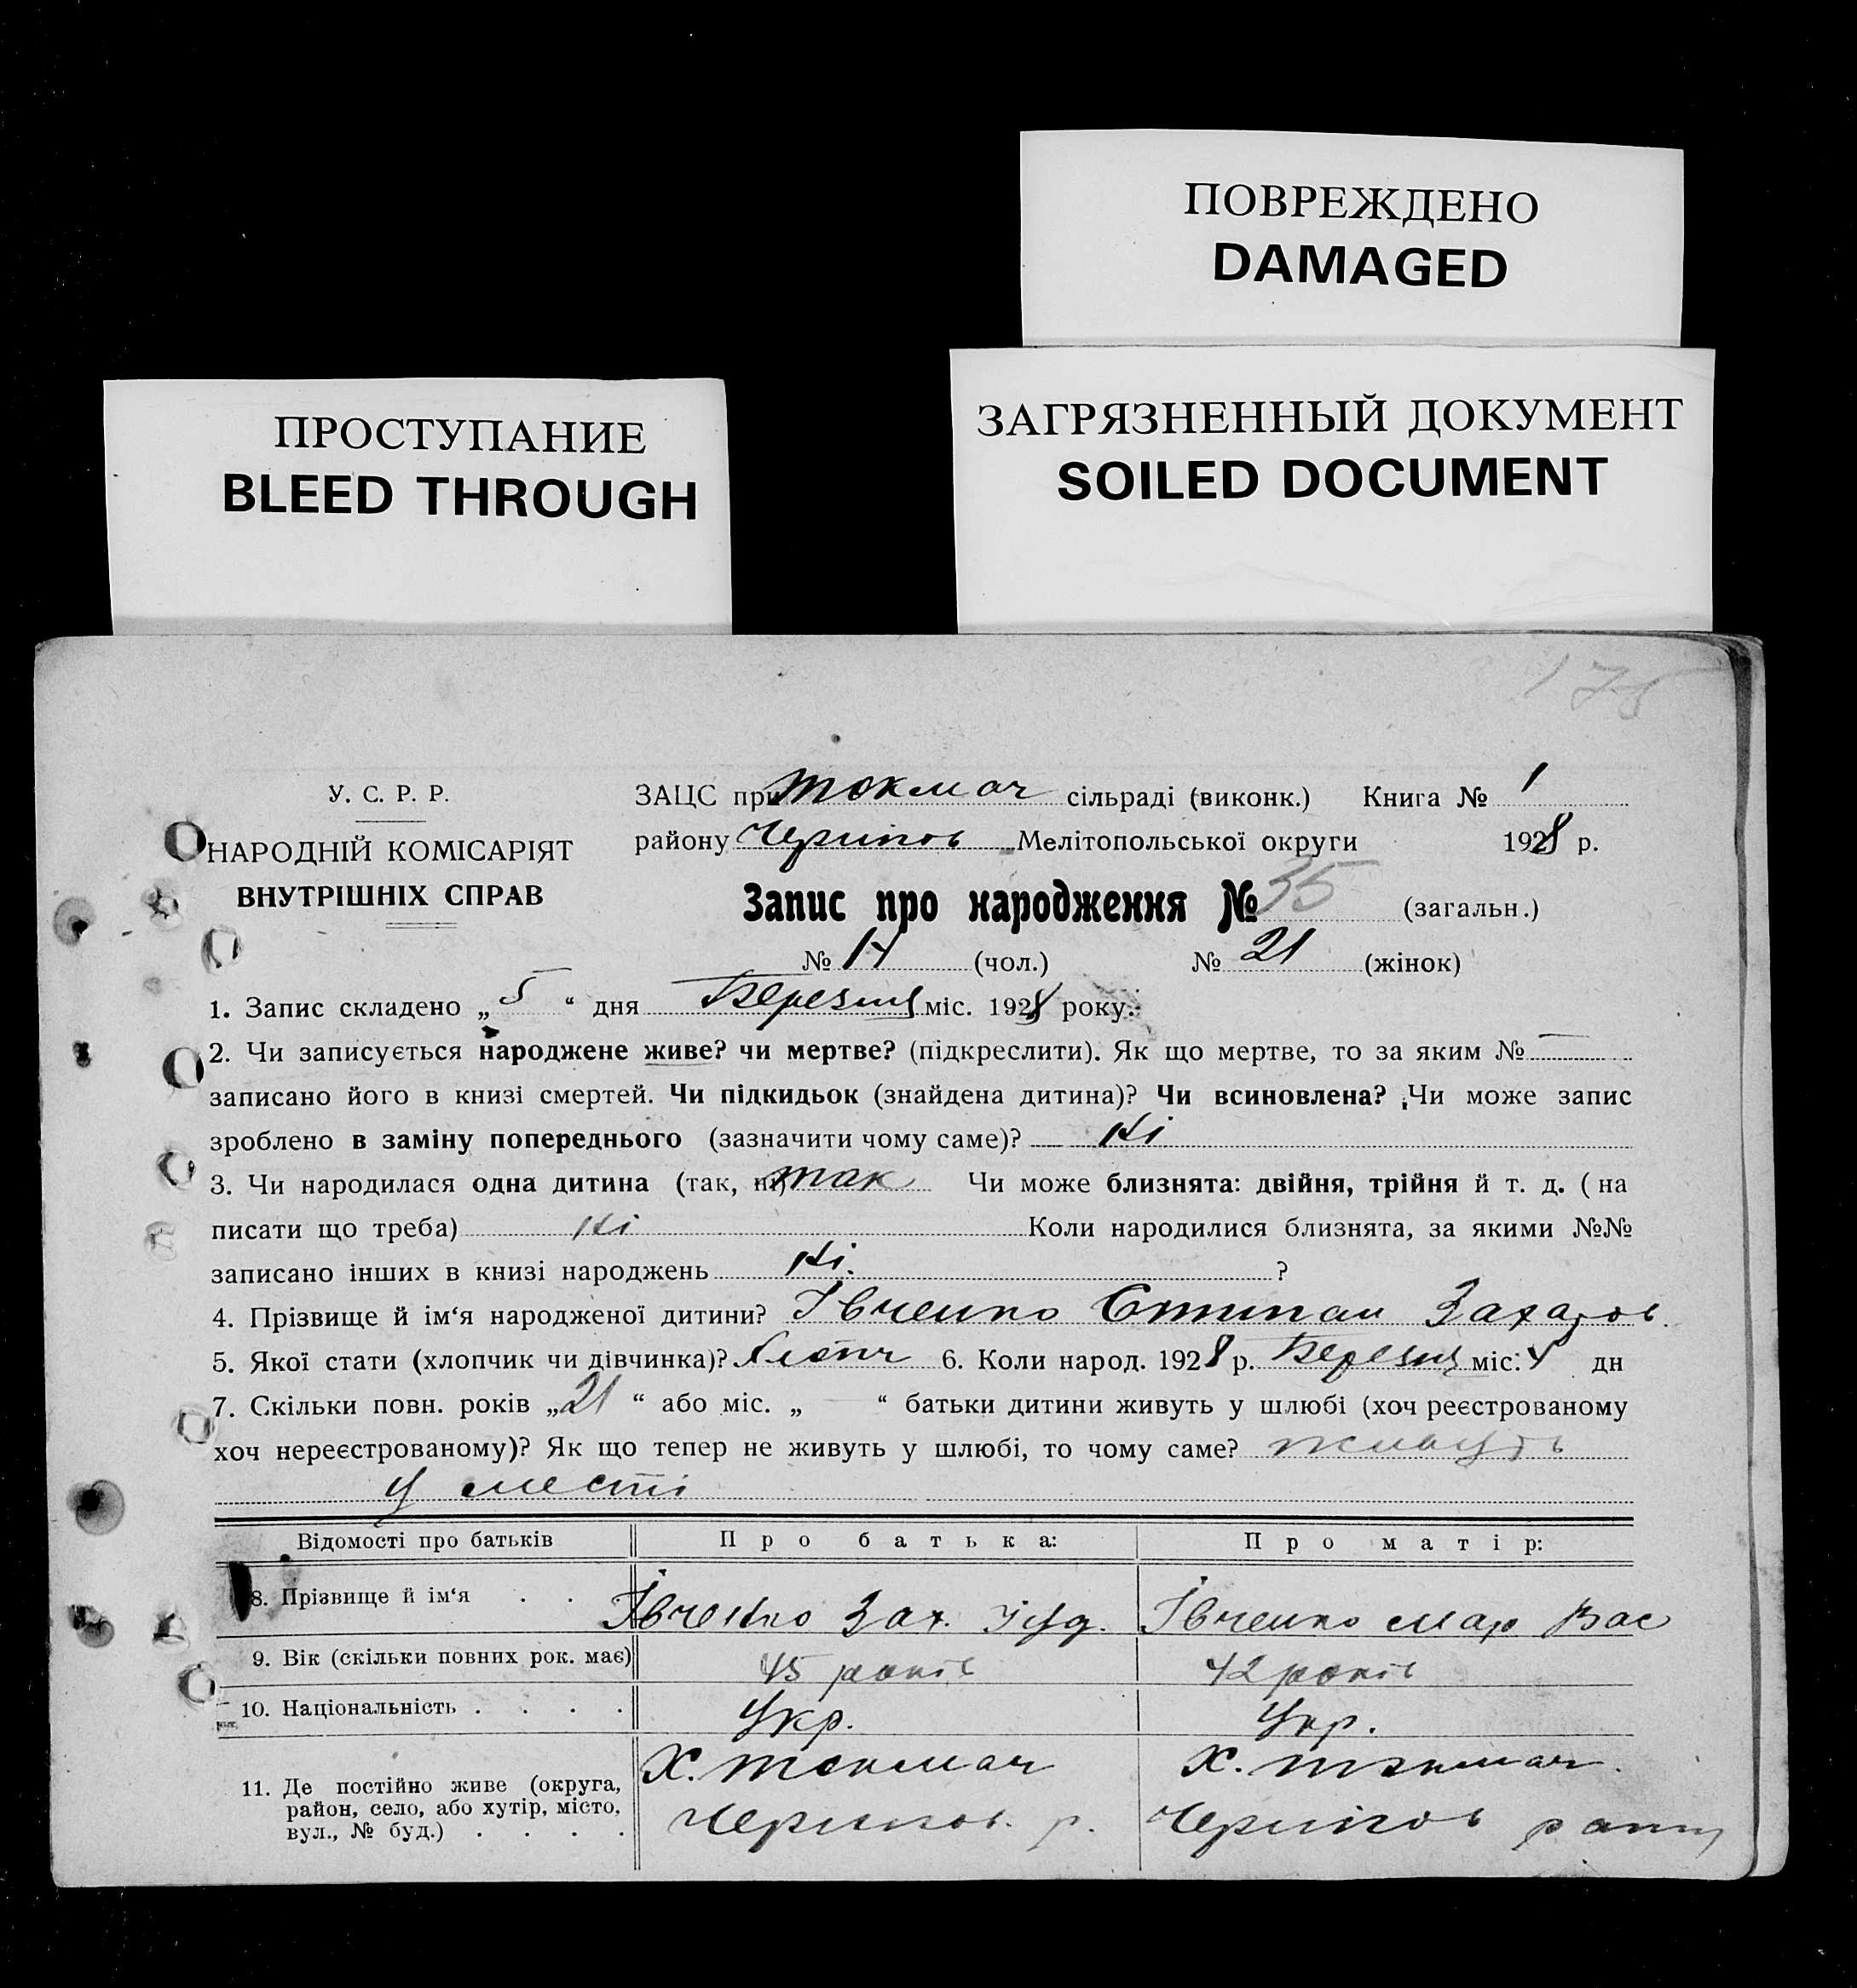 ПОВРЕЖДЕНО
DAMAGED
ПРОСТУПАНИЕ
BLEED THROUGH
ЗАГРЯЗНЕННЫЙ ДОКУМЕНТ
SOILED DOCUMENT
175
У. С. Р. Р.
НАРОДНІЙ КОМІСАРІЯТ
ВНУТРІШНІХ СПРАВ
ЗАЦС при Токмач сільраді (виконк.) Книга № 1
району Черигов Мелітопольської округи 1928 р.
Запис про народження № 35 (загальн.)
№ 14 (чол.) № 21 (жінок)
1. Запис складено „ 5 “ дня Березня міс. 1928 року.
2. Чи записується народжене живе? чи мертве? (підкреслити). Як що мертве, то за яким № —
записано його в книзі смертей. Чи підкидьок (знайдена дитина)? Чи всиновлена? Чи може запис
зроблено в заміну попереднього (зазначити чому саме)? Ні
3. Чи народилася одна дитина (так, ні) так Чи може близнята: двійня, трійня й т. д. (на
писати що треба) Ні Коли народилися близнята, за якими №№
записано інших в книзі народжень Ні. ?
4. Прізвище й ім‘я народженої дитини? Івченко Стипан Захаров.
5. Якої стати (хлопчик чи дівчинка)? Хлопч 6. Коли народ. 1928 р. Березня міс. 4 дн
7. Скільки повн. років „ 21 “ або міс. „ — “ батьки дитини живуть у шлюбі (хоч реєстрованому
хоч нереєстрованому)? Як що тепер не живуть у шлюбі, то чому саме? живуть
у месті
Відомості про батьків Про батька: Про матір:
8. Прізвище й ім‘я . . Івченко Зах. Івченко Мар Вас
9. Вік (скільки повних рок. має) 45 років 42 років
10. Національність . . . . Укр. Укр.
11. Де постійно живе (округа,
район, село, або хутір, місто,
вул., № буд.) . . . .
Х. Токмач
Черигов. р.
Х. Токмач.
Черигов